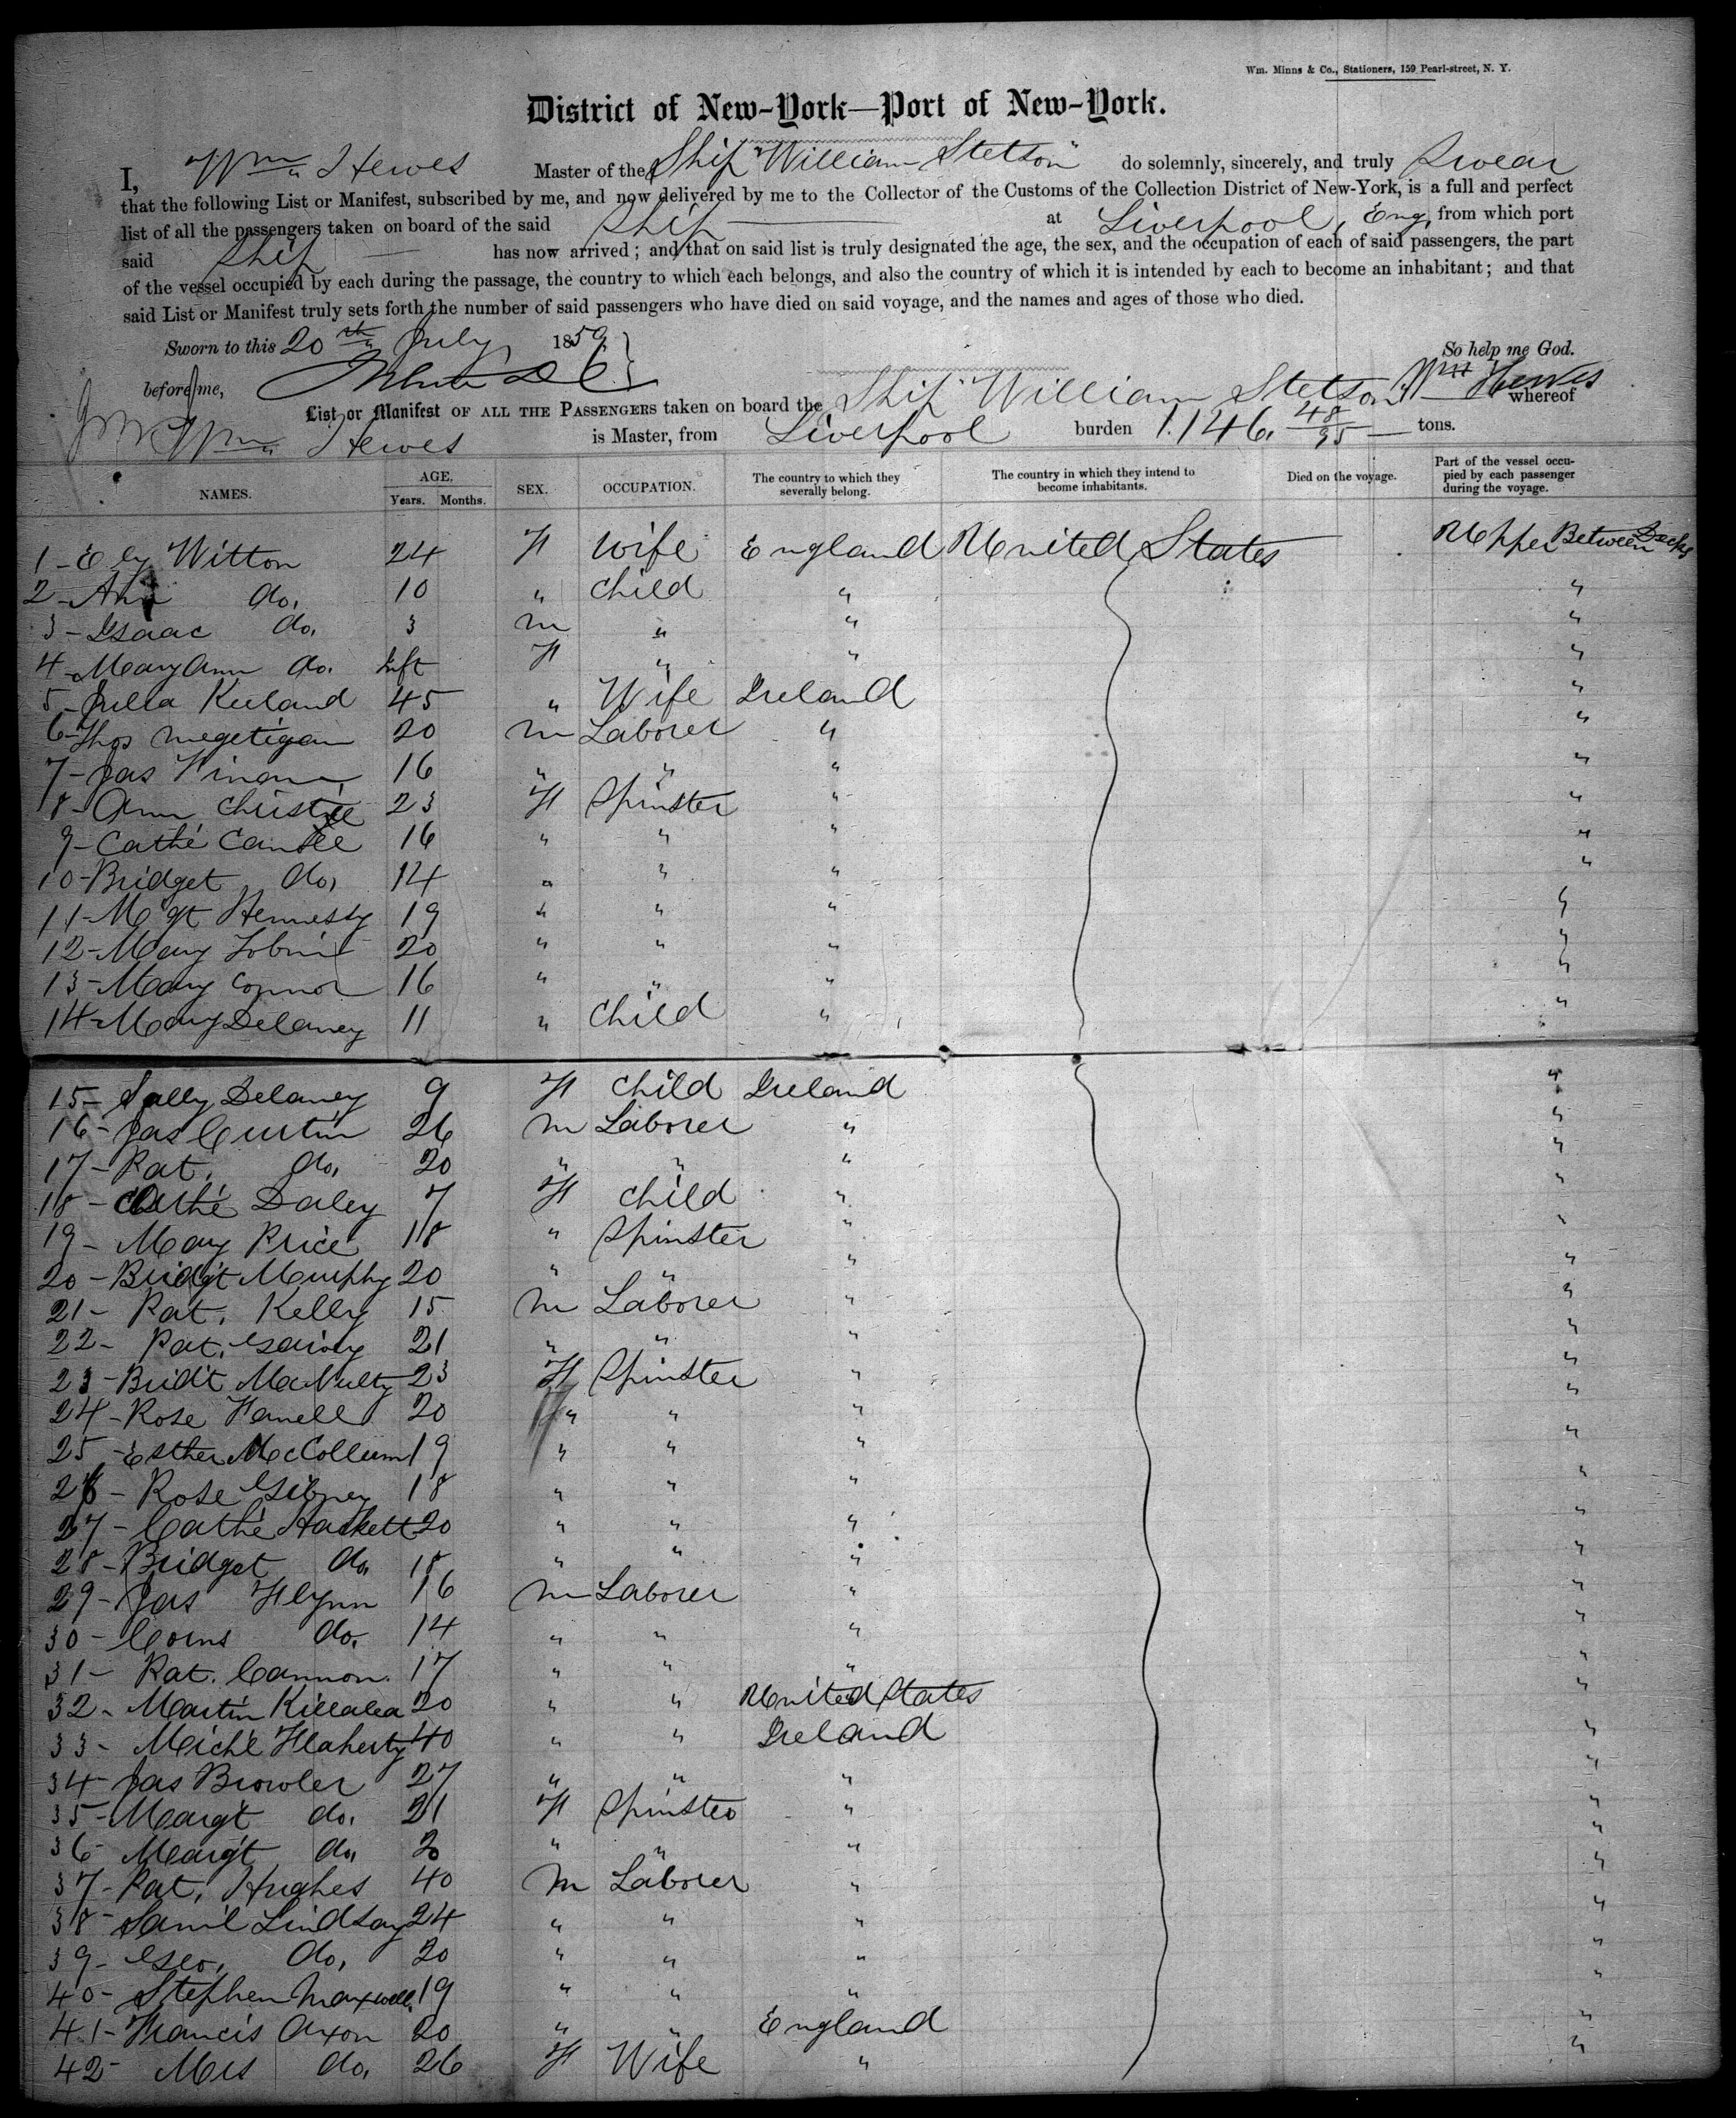 Wm. Minns & Co., Stationers, 159 Pearl-street, N. Y.
District of New-York—Port of New-York.
I, Wm Hewes Master of the Ship "William Stetson" do solemnly, sincerely, and truly swear
that the following List or Manifest, subscribed by me, and now delivered by me to the Collector of the Customs of the Collection District of New-York, is a full and perfect
list of all the passengers taken on board of the said Ship at Liverpool, Eng, from which port
said Ship has now arrived; and that on said list is truly designated the age, the sex, and the occupation of each of said passengers, the part
of the vessel occupied by each during the passage, the country to which each belongs, and also the country of which it is intended by each to become an inhabitant; and that
said List or Manifest truly sets forth the number of said passengers who have died on said voyage, and the names and ages of those who died.
Sworn to this 20th July, 1859 So help me God.
before me, Wm Hewes
List or Manifest OF ALL THE PASSENGERS taken on board the Ship "William Stetson" whereof
Wm Hewes is Master, from Liverpool burden 1.146. 48/95 tons.
NAMES. AGE. Years. Months. SEX. OCCUPATION. The country to which they severally belong. The country in which they intend to become inhabitants. Died on the voyage. Part of the vessel occupied by each passenger during the voyage.
1 - Ely Witton 24 F Wife England United States Upper Between Decks
2 - Ann do. 10 " Child " "
3 - Isaac do. 3 M " " "
4 - Mary Ann do. Inft F " " "
5 - Julia 45 " Wife Ireland "
6 - Thos Megetigan 20 M Laborer " "
7 - Jas 16 " " " "
8 - Ann Christie 23 F Spinster " "
9 - Cathe 16 " " " "
10 - Bridget do, 14 " " " "
11 - Mgt Hennessy 19 " " " "
12 - Mary 20 " " " "
13 - Mary Connor 16 " " " "
14 - Mary Delaney 11 " Child " "
15 - Sally Delaney 9 F Child Ireland "
16 - Jas Curtin 26 M Laborer " "
17 - Pat. do, 20 " " " "
18 - Cathe Daley 7 F Child " "
19 - Mary Price 18 " Spinster " "
20 - Bridgt Murphy 20 " " " "
21 - Pat. Kelly 15 M Laborer " "
22 - Pat. 21 " " " "
23 - Bridt McNulty 23 F Spinster " "
24 - Rose 20 " " " "
25 - Esther McCollum 19 " " " "
26 - Rose Gibney 18 " " " "
27 - Cathe Hackett 20 " " " "
28 - Bridget do. 18 " " " "
29 - Jas Flynn 16 M Laborer " "
30 - Corns do. 14 " " " "
31 - Pat. Cannon. 17 " " " "
32 - Martin Killalea 20 " " United States "
33 - Michl Flaherty 40 " " Ireland "
34 - Jas Browler 27 " " " "
35 - Margt do. 21 F Spinster " "
36 - Margt do, 20 " " " "
37 - Pat, Hughes 40 M Laborer " "
38 - Saml Lindsay 24 " " " "
39 - Geo. do, 20 " " " "
40 - Stephen Maxwell, 19 " " " "
41 - Francis Axon 20 " " England "
42 - Mrs do, 26 F Wife " "